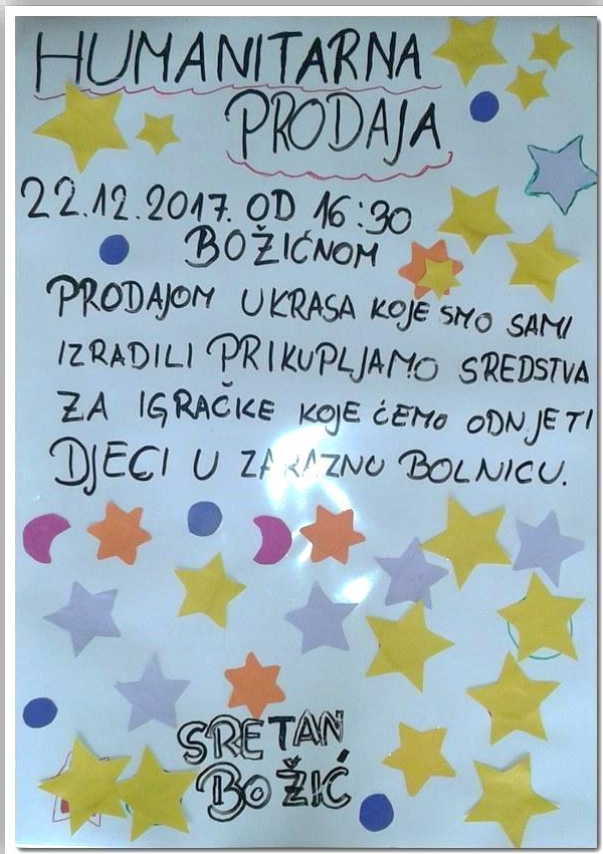 HUMANITARNA
PRODAJA
22.12.2017. OD 16:30
BOŽIĆNOM
PRODAJOM UKRASA KOJE SMO SAMI
IZRADILI PRIKUPLJAMO SREDSTVA
ZA IGRAČKE KOJE ĆEMO ODNJETI
DJECI U ZARAZNU BOLNICU.
SRETAN
BOŽIĆ